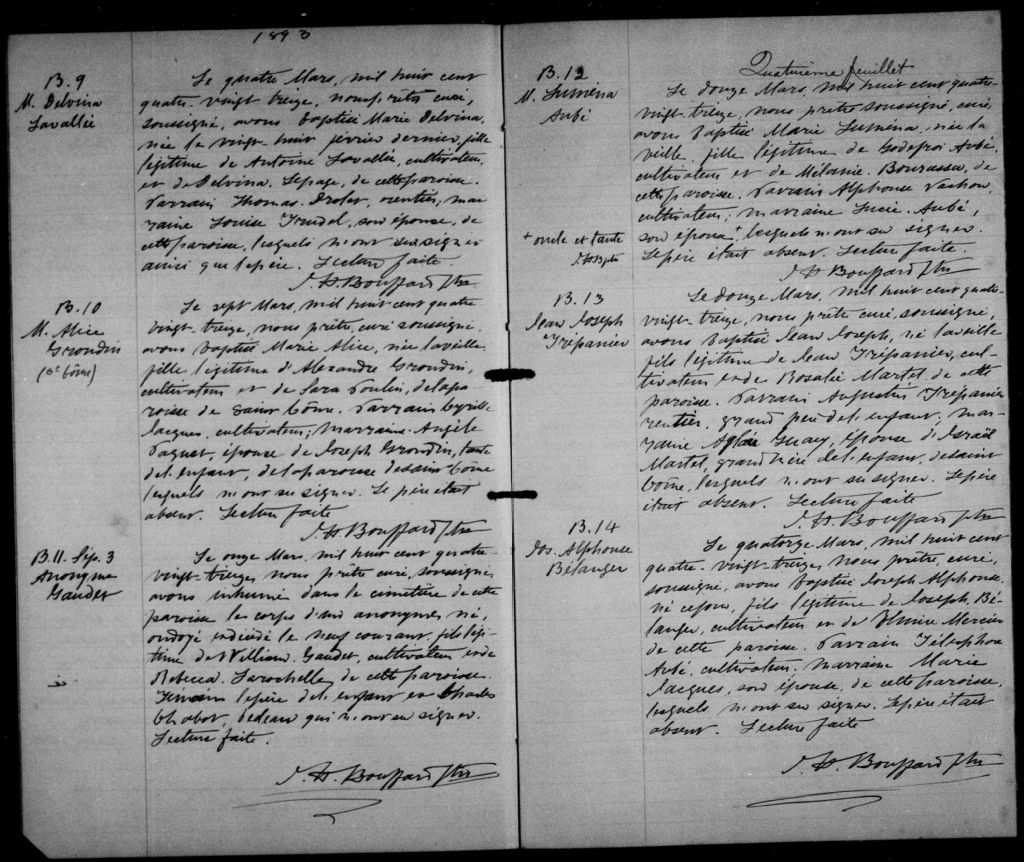 1893
B. 9
M. Delvina
Lavallée
Le quatre Mars, mil huit cent
quatre-vingt-treize, nous prêtre curé,
soussigné, avons baptisé Marie Delvina,
née le vingt-huit février dernier, fille
légitime de Antoine Lavallée, cultivateur,
et de Delvina Lepage, de cette paroisse.
Parrain Thomas Drolet, rentier; mar-
raine Louise Trudel, son épouse, de
cette paroisse, lesquels n'ont su signer
ainsi que le père. Lecture faite.
J. H. Bouffard Ptre
B. 10
M. Alice
Grondin
(St Côme)
Le sept Mars, mil huit cent quatre
vingt-treize, nous prêtre, curé soussigné
avons baptisé Marie Alice, née la veille
fille légitime d'Alexandre Grondin,
cultivateur et de Sara Poulin, de la pa-
roisse de Saint Côme. Parrain Cyrille
Jacques, cultivateur; marraine Angèle
Paquet, épouse de Joseph Grondin, tante
de l'enfant, de la paroisse de Saint Côme
lesquels n'ont su signer. Le père était
absent. Lecture faite
J. H. Bouffard Ptre
B. 11. Sép. 3
Anonyme
Gaudet
Le onze Mars, mil huit cent quatre-
vingt-treize, nous prêtre curé, soussigné
avons inhumé dans le cimetière de cette
paroisse le corps d'un anonyme, né,
ondoyé et décédé le neuf courant, fils légi-
time de William Gaudet, cultivateur et de
Rebecca Larochelle, de cette paroisse.
Témoins le père de l'enfant et Charles
Chabot, bedeau qui n'ont su signer.
Lecture faite.
J. H. Bouffard Ptre
Quatrième feuillet
B. 12
M. Luména
Aubé
Le douze Mars, mil huit cent quatre-
vingt-treize, nous prêtre soussigné, curé,
avons baptisé Marie Luména, née la
veille, fille légitime de Godefroi Aubé,
cultivateur et de Mélanie Bourassa, de
cette paroisse. Parrain Alphonse Vachon,
cultivateur; marraine Lucie Aubé,
son épouse + lesquels n'ont su signer.
Le père était absent. Lecture faite.
+ oncle et tante
J. H. B. ptre
J. H. Bouffard Ptre
B. 13
Jean Joseph
Trépanier
Le douze Mars, mil huit cent quatre-
vingt-treize, nous prêtre curé, soussigné,
avons baptisé Jean Joseph, né la veille
fils légitime de Jean Trépanier, cul-
tivateur et de Rosalie Martel, de cette
paroisse. Parrain Augustin Trépanier
rentier, grand père de l'enfant, mar-
raine Aglaé Guay, épouse d'Israël
Martel, grand'mère de l'enfant, de Saint
Côme, lesquels n'ont su signer. Le père
était absent. Lecture faite
J. H. Bouffard Ptre
B. 14
Jos. Alphonse
Bélanger
Le quatorze Mars, mil huit cent
quatre-vingt-treize, nous prêtre, curé,
soussigné, avons baptisé Joseph Alphonse,
né ce jour, fils légitime de Joseph Bé-
langer, cultivateur et de Elmire Mercier
de cette paroisse. Parrain Télesphore
Aubé, cultivateur. Marraine Marie
Jacques, son épouse, de cette paroisse,
lesquels n'ont su signer. Le père était
absent. Lecture faite
J. H. Bouffard Ptre